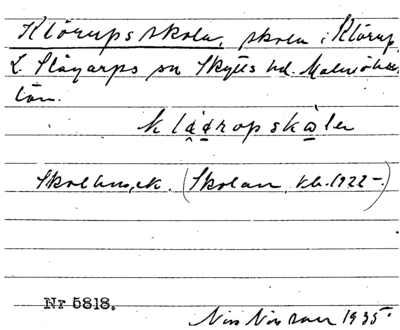 Klörups skola, skola i Klörup,
L. Slågarps sn Skytts hd. Malmöhus
län.
klå̠ǡropskɑ̠ler
Skolhus, ek. (Skolan, kb. 1922-.)
Nr 5818.
1935.